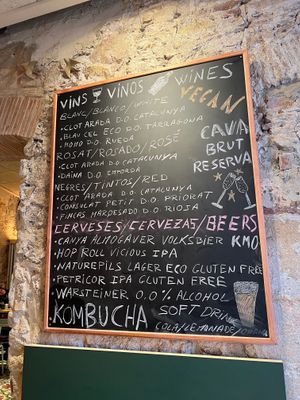 VINS VINOS WINES
BLANC/BLANCO/WHITE VEGAN
•CLOT ARADA D.O. CATALUNYA
•BLAU CEL ECO D.O. TARRAGONA
•HOMO D.O. RUEDA
ROSAT/ROSADO/ROSÉ
•CLOT ARADA D.O. CATALUNYA
•DAINA D.O. EMPORDÀ
CAVA
BRUT
RESERVA
NEGRES/TINTOS/RED
•CLOT ARADA D.O. CATALUNYA
•CONSULAT PETIT D.O. PRIORAT
•FINCAS D.O. RIOJA
CERVESES/CERVEZAS/BEERS
•CANYA ALMOGÀVER VOLKSDIER KM0
•HOP ROLL VICIOUS IPA
•NATUREPILS LAGER ECO GLUTEN FREE
•PETRICOR IPA GLUTEN FREE
•WARSTEINER 0.0% ALCOHOL
KOMBUCHA SOFT DRINK
COLA/LEMONADE/